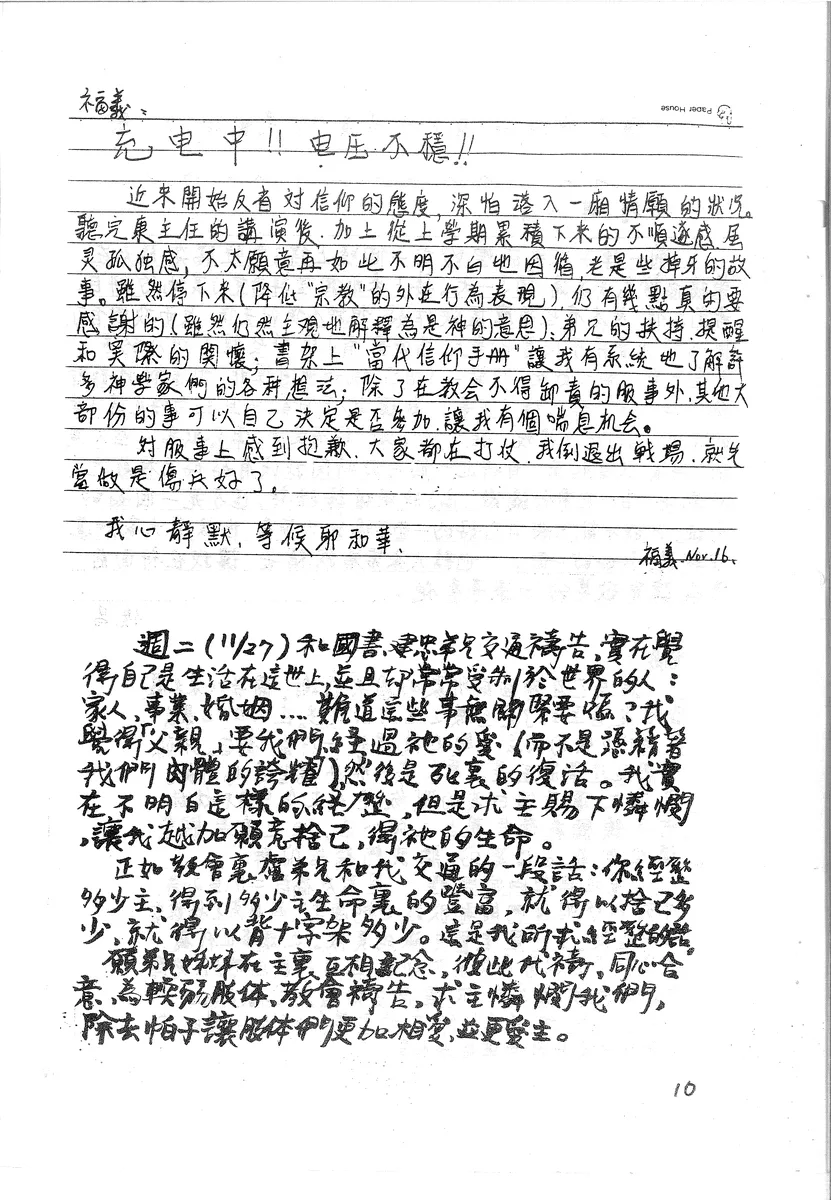 Paper House
福義：
充电中!! 电压不穩!!
近來開始反省对信仰的態度,深怕落入一廂情願的狀況。
聽完東主任的講演後.加上從上學期累積下來的不順遂感屬
灵孤独感,不太願意再如此不明不白地因循,老是些掉牙的故
事。雖然停下來(降低"宗教"的外在行為表現)仍有幾點真的要
感謝的(雖然仍然主观地解釋為是神的意思):弟兄的扶持.提醒
和实際的関懷;書架上"當代信仰手册"讓我有系統地了解許
多神学家們的各种想法;除了在教会不得卸責的服事外.其他大
部份的事可以自己決定是否参加.讓我有個喘息机会。
对服事上感到抱歉.大家都在打仗.我倒退出戰場.就先
當做是傷兵好了。
我心靜默,等候耶和華.
福義.Nov.16.
週二(11/27)和國書、建忠弟兄交通禱告,實在覺
得自己是生活在這世上,並且却常常受制於世界的人:
家人、事業、婚姻....難道這些事無關緊要嗎?我
覺得「父親」要我們經過祂的愛(而不是憑藉著
我們肉體的誇耀)然後是死裏的復活。我實
在不明白這樣的經歷,但是求主賜下憐憫
,讓我越加願意捨己,得祂的生命。
正如教會裏 弟兄和我交通的一段話:你經歷
多少主,得到多少主生命裏的豐富,就得以捨己多
少,就得以背十字架多少。這是我所求經歷的話。
願弟兄姊妹在主裏互相記念,彼此代禱,同心合
意,為軟弱肢体、教會禱告,求主憐憫我們,
除去帕子讓肢体們更加相愛,並更愛主。
10